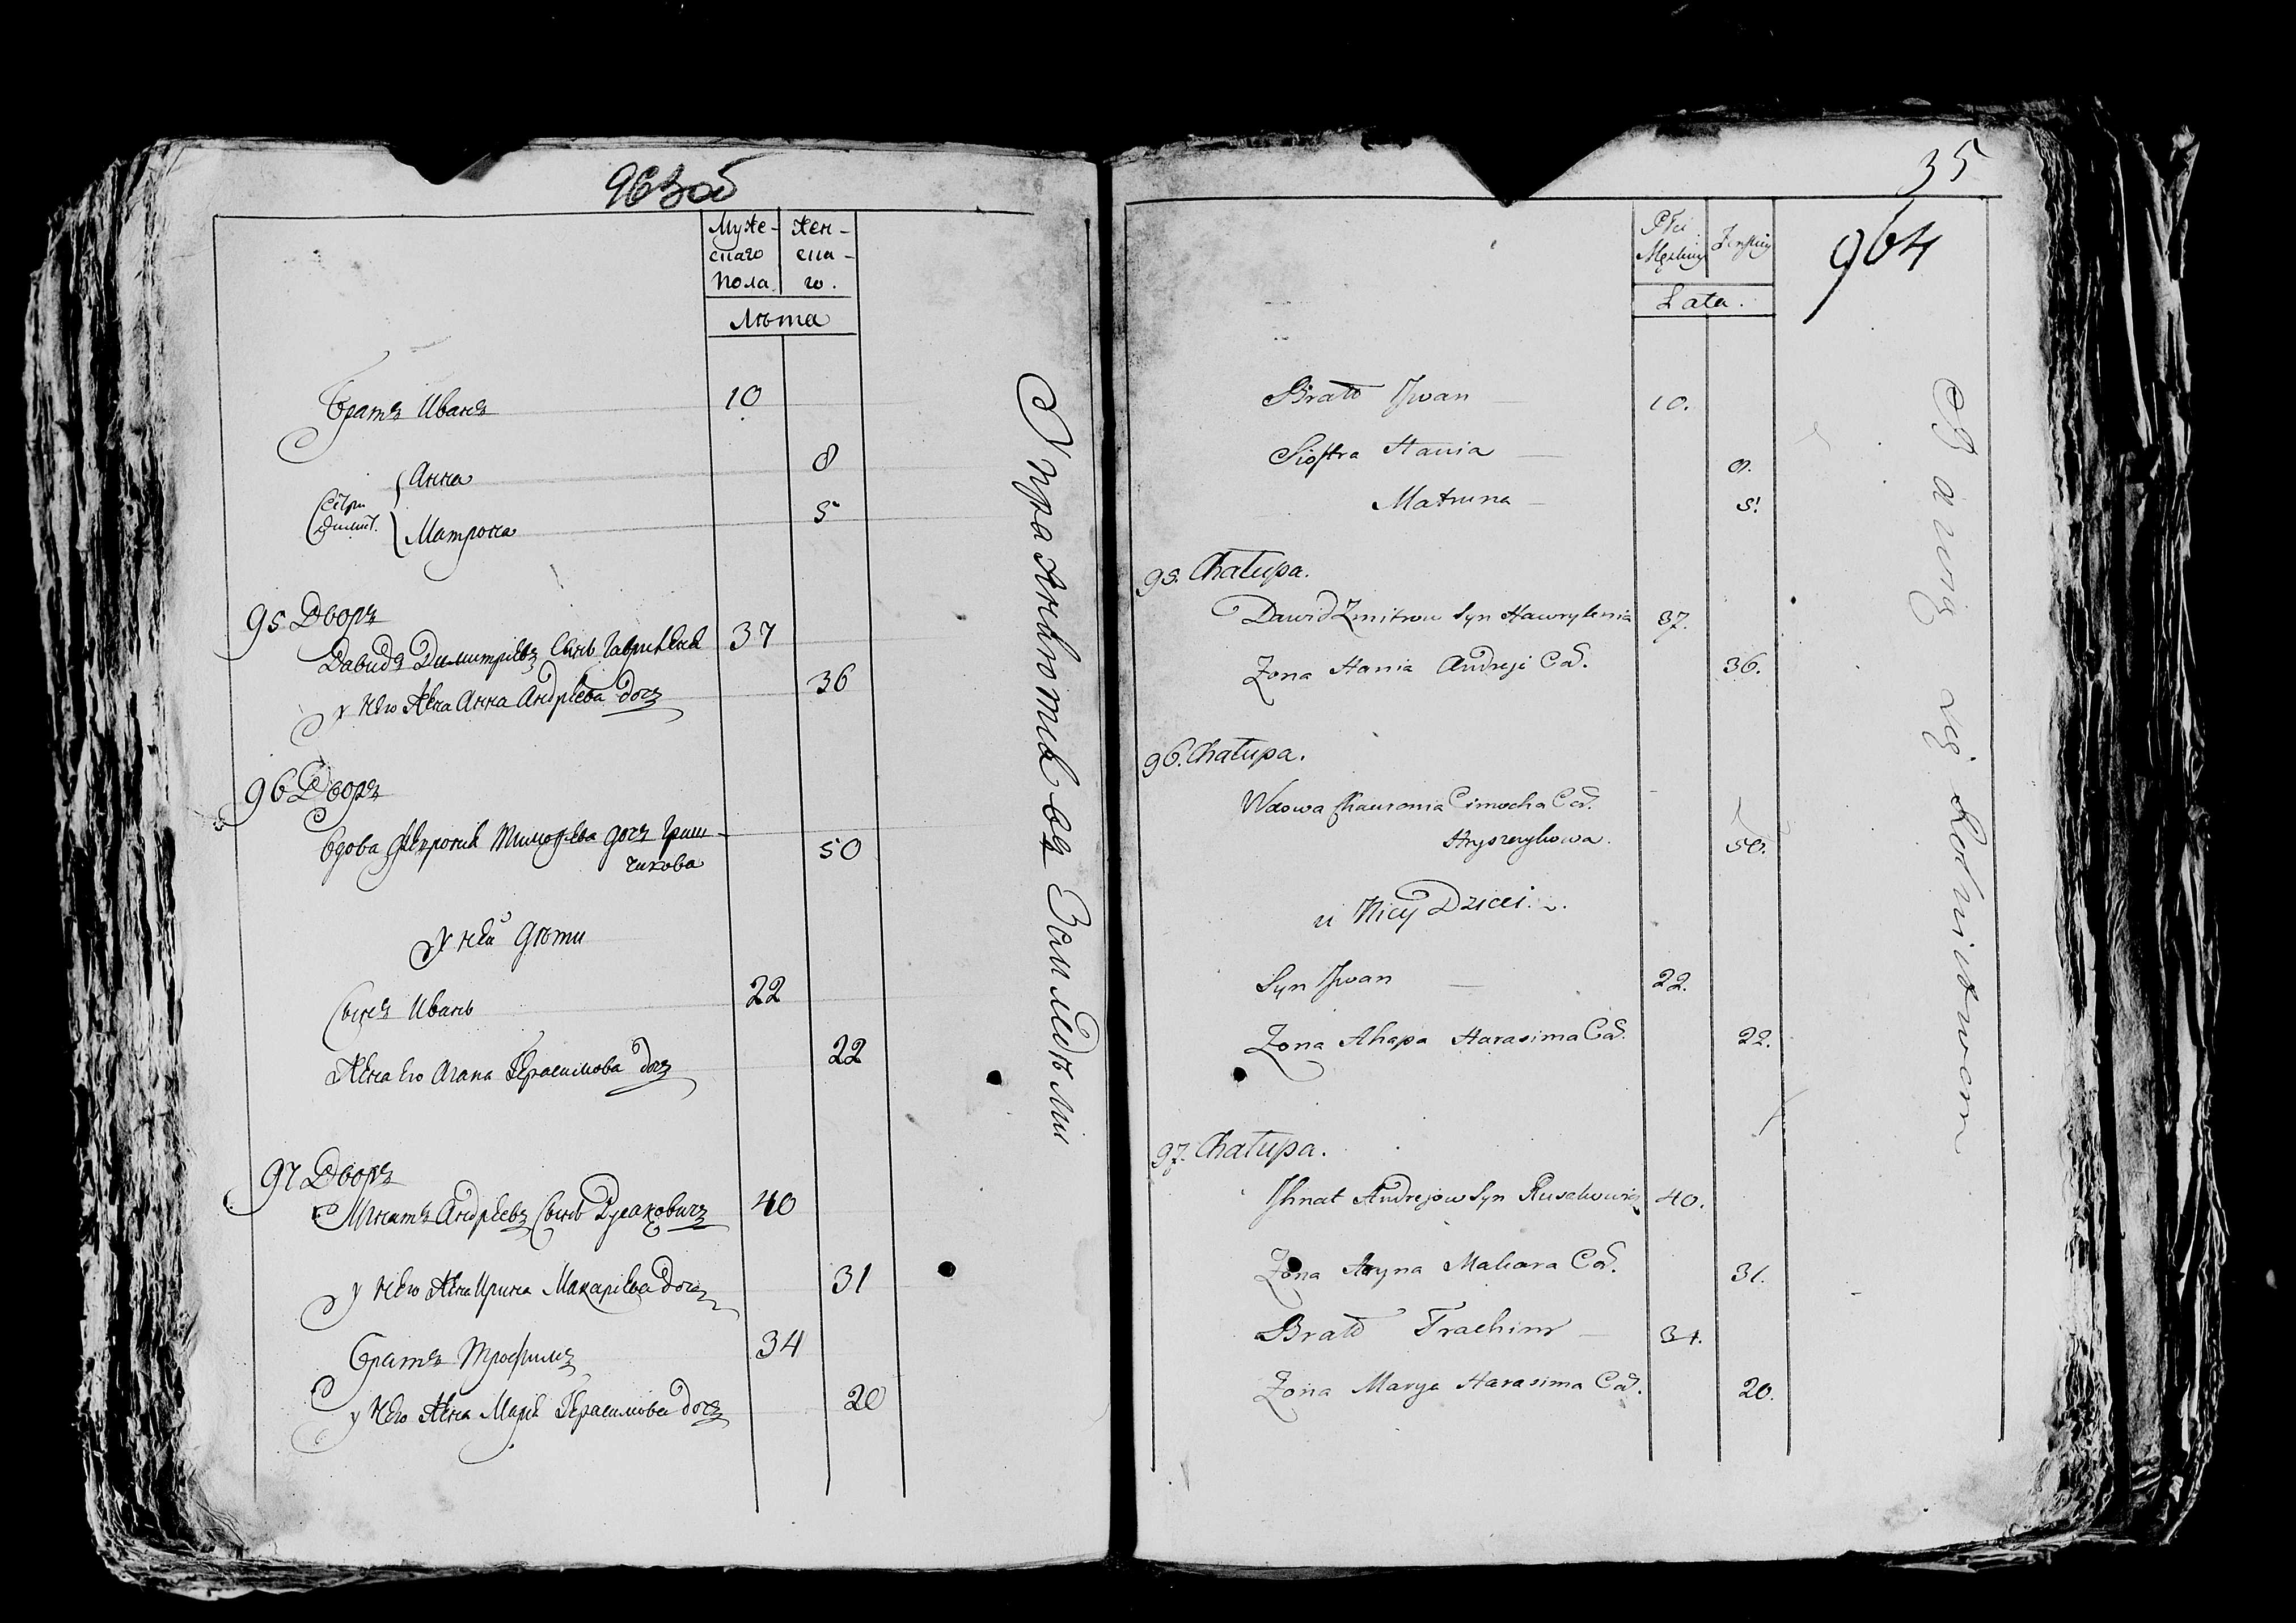 963об
Муже- Жен-
скаго ска-
пола го.
Лѣта
Братъ Иванъ 10
Анна 8
Сестры
Матрона 5
95 Дворъ
Давидъ Димитріевъ Сынъ 37
у него Жена Анна Андрѣева дочь 36
96 Дворъ
Вдова Тимофѣева дочь Гриш-
чикова 50
У ней дѣти
Сынъ Иванъ 22
Жена Его Агапа Герасимова дочь 22
97 Дворъ
Игнатъ Андрѣевъ Сынъ Русаковичъ 40
у него Жена Ирина Макарѣева дочь 31
Братъ Трофимъ 34
у него Жена Марья Герасимова дочь 20
35
964
Płci
Męskiey Żeńskiey
Lata.
Bratt Jwan 10.
Siostra Hania 8.
Matruna 5.
95. Chałupa.
Dawid Zmitrow Syn Hawrylenia 37.
Zona Hania Andreji Cor. 36.
96. Chałupa.
Wdowa Chauronia Cimocha Cor.
Hryszczykowa. 50.
u Niey Dzieci.
Syn Jwan 22.
Zona Ahapa Harasima Cor. 22.
97. Chałupa.
Jhnat Andrejow Syn Rusakowicz 40.
Zona Aryna Makara Cor. 31.
Bratt Trachim 34.
Zona Marya Harasima Cor. 20.